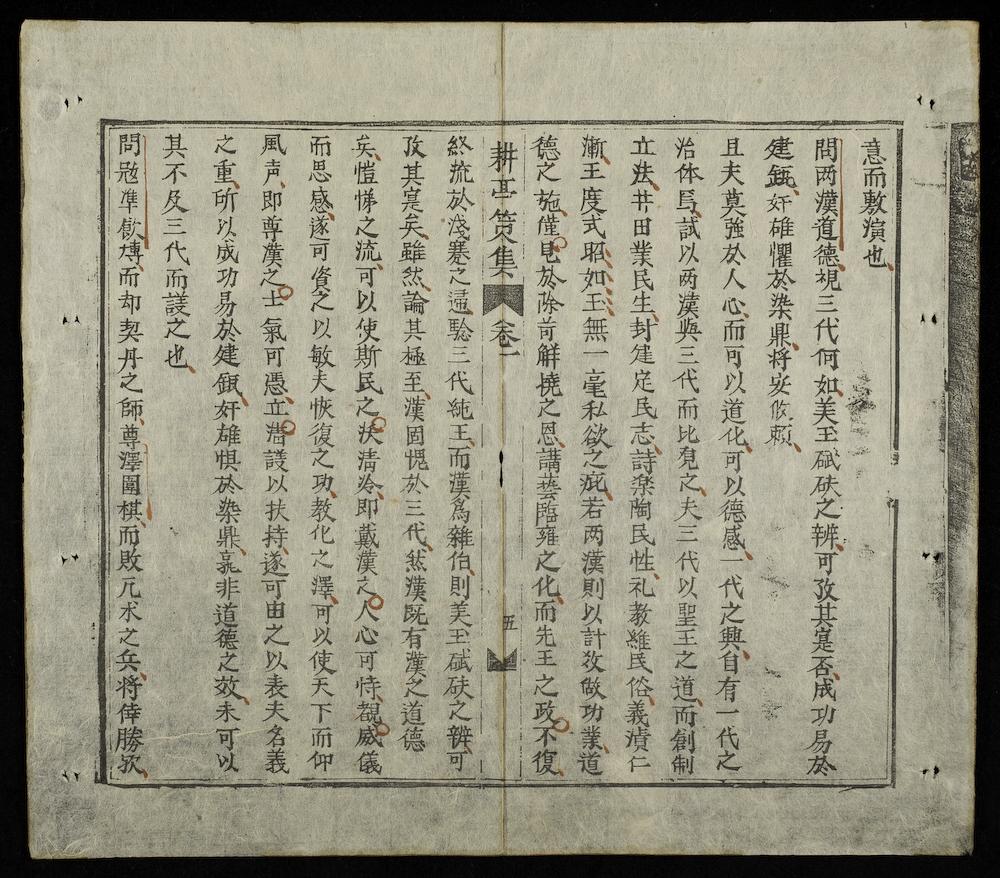 意而敷演也
問両漢道徳視三代何如美玉碔砆之辨可攷其寔否成功易於
建瓴奸雄懼於染鼎将安攸頼
且夫莫強於人心而可以道化可以德感一代之興自有一代之
治体焉試以両漢與三代而比覌之夫三代以聖王之道而創制
立法井田業民生封建定民志詩楽陶民性礼教維民俗義漬仁
漸王度式昭如玉無一毫私欲之疵若两漢則以計效做功業道
德之施僅見於除苛觧撓之恩講藝臨雍之化而先王之政不復
耕亭策集
卷一
五
終流於淺蹇之逼駼三代純王而漢爲雜伯則美玉碔砆之辨可
攷其寔矣雖然論其極至漢固愧於三代然漢既有漢之道德
矣愷悌之流可以使斯民之浹清冷即戴漢之人心可恃覩威儀
而思感遂可資之以敏夫恢復之功教化之澤可以使天下而仰
風声即尊漢之士氣可憑立清議以扶持遂可由之以表夫名義
之重所以成功易於建瓴奸雄惧於染鼎孰非道德之效未可以
其不及三代而議之也
問冦准飲博而却契丹之師尊澤圍棋而敗兀术之兵将倖勝欤